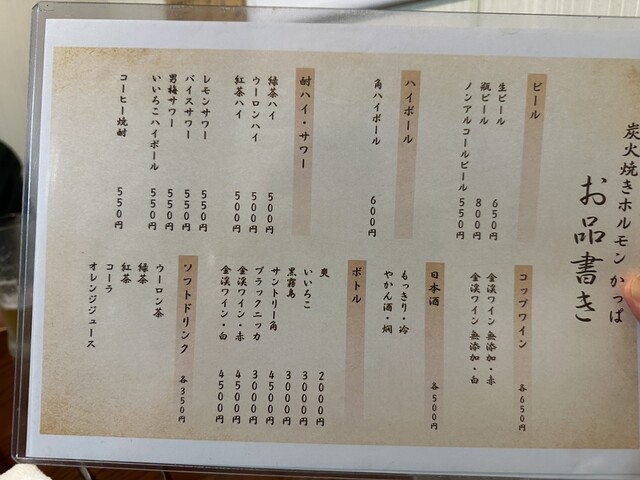 炭火焼きホルモン かっぱ
お品書き
ビール
生ビール 650円
瓶ビール 800円
ノンアルコールビール 550円
ハイボール
角ハイボール 600円
酎ハイ・サワー
緑茶ハイ 500円
ウーロンハイ 500円
紅茶ハイ 500円
レモンサワー 550円
バイスサワー 550円
男梅サワー 550円
いいろこハイボール 550円
コーヒー焼酎 550円
コップワイン 各650円
金渓ワイン 無添加・赤
金渓ワイン 無添加・白
日本酒 各500円
もっきり・冷
やかん酒・燗
ボトル
爽 2000円
いいろこ 3000円
黒霧島 3000円
サントリー角 4500円
ブラックニッカ 3000円
金渓ワイン・赤 4500円
金渓ワイン・白 4500円
ソフトドリンク 各350円
ウーロン茶
緑茶
紅茶
コーラ
オレンジジュース